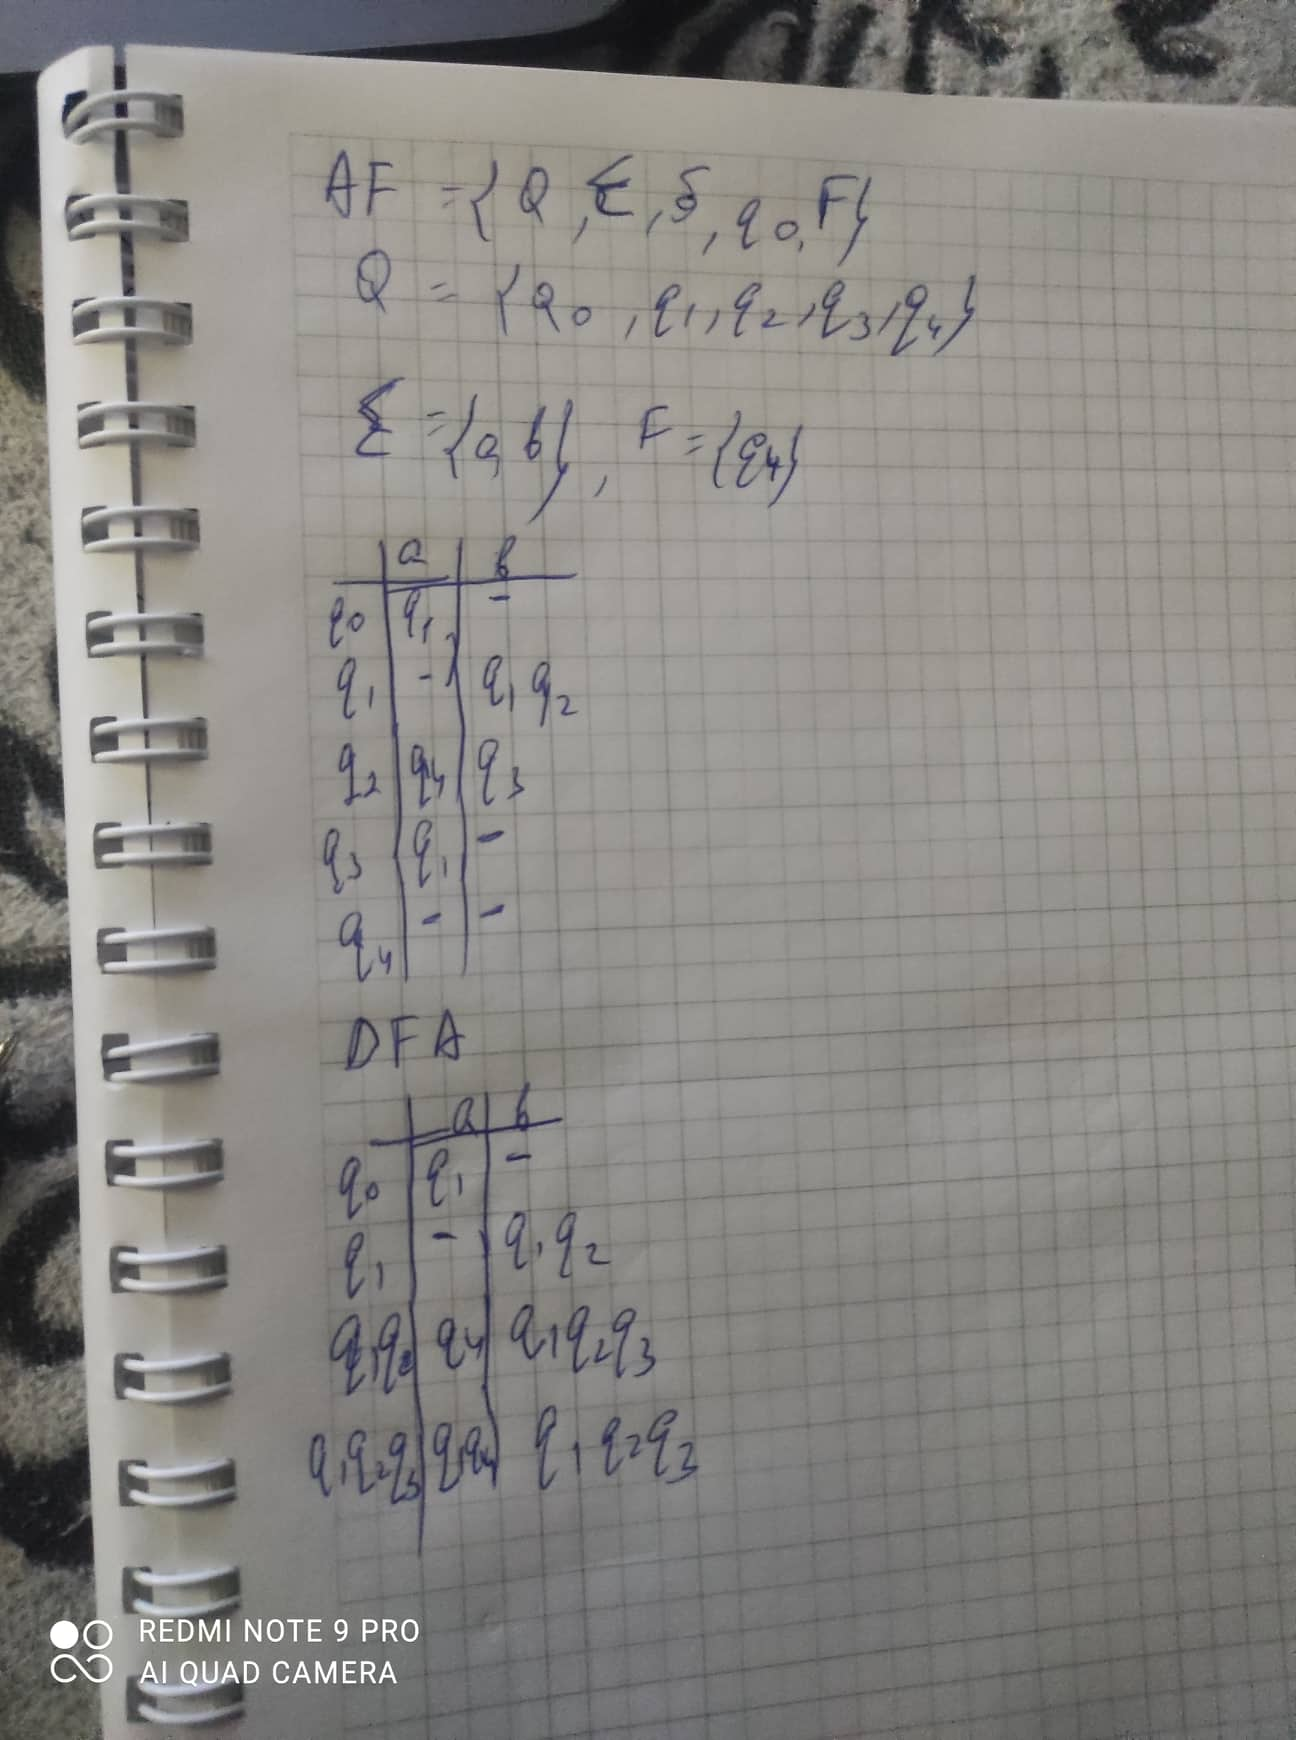 AF = {Q, Σ, δ, q0, F}
Q = {Q0, q1, q2, q3, q4}
Σ = {a, b}, F = {q4}
a b
q0 q1 -
q1 - q1 q2
q2 q4 q3
q3 q1 -
q4 - -
DFA
a b
q0 q1 -
q1 - q1 q2
q1q2 q4 q1q2q3
q1q2q3 q1q4 q1 q2q3
REDMI NOTE 9 PRO
AI QUAD CAMERA